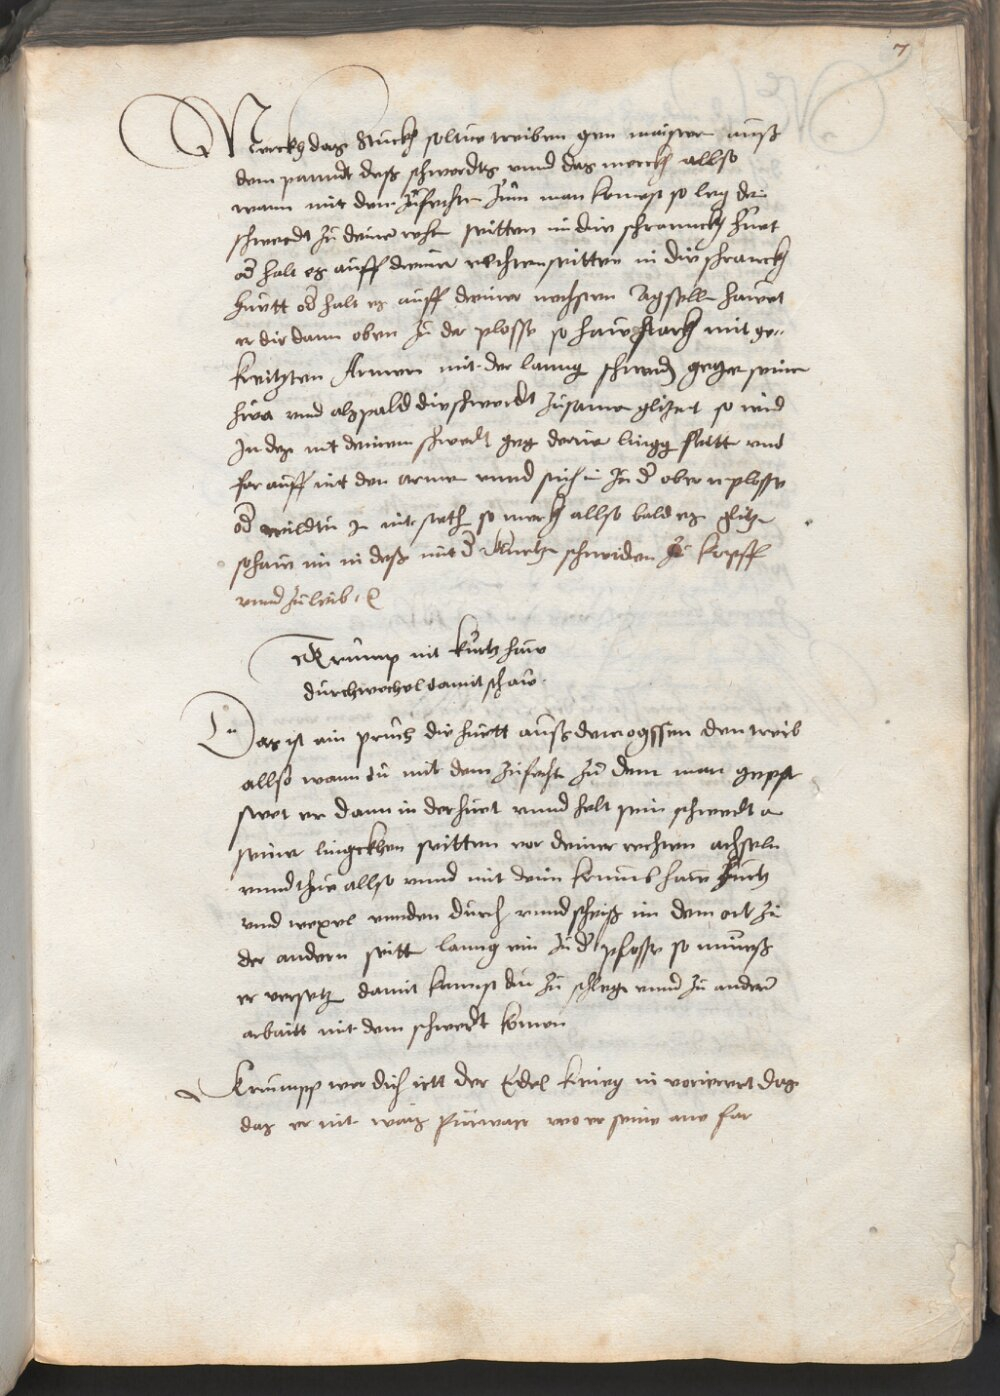 7
Merckh das Stuckh soltu treiben gen maister auß
dem panndt deß schwerdts vnnd das merckh allso
wann mit dem Zufechten Zum man komest so leg dein
schwerdt Zu deiner rechten seitten in die schrannckh huet
od halt es auff deiner rechten seitten in die schranckh
huett od halt es auff deiner rechsten Agsselln hawet
er dir dann oben Zu der plosse so haw starckh mit ge
kreitzten Armen mit der lanng schneid gegen seine
haw vnd alspald die schwerdt Zusamen glitzent so wind
Indes mit deinem schwert geg deine lingg seitt vnd
far auff mit den armen vnnd stich im Zu d obern plosse
od wildtu In nit stech so merckh allso bald es glitz
so haw im in deß mit d kurtzen schneiden Zu kopff
vnnd Zu leib
Krump nit kurtz haw
durchwechel damit schaw
Das ist ain pruch die huett auß dem ogssen den treib
allso wann du mit dem Zufecht Zu dem man gepst
stet er dann in der huet vnnd helt sein schwerdt an
seiner lingckhen seitten vor deiner rechten achseln
vnnd thue allso vnnd mit deim krumb haw kurtz
vnd wexel vnnden durch vnnd scheiß im dem ort Zu
der andern seitt lanng ein Zu d plosse so mueß
er versetz damit kamst du Zu schlege vnnd Zu andern
arbaitt mit dem schwerdt komen
Krumpp wer dich irtt der Edel krieg in verierret das
das er nit waiß Fürwar wo er seine ane far